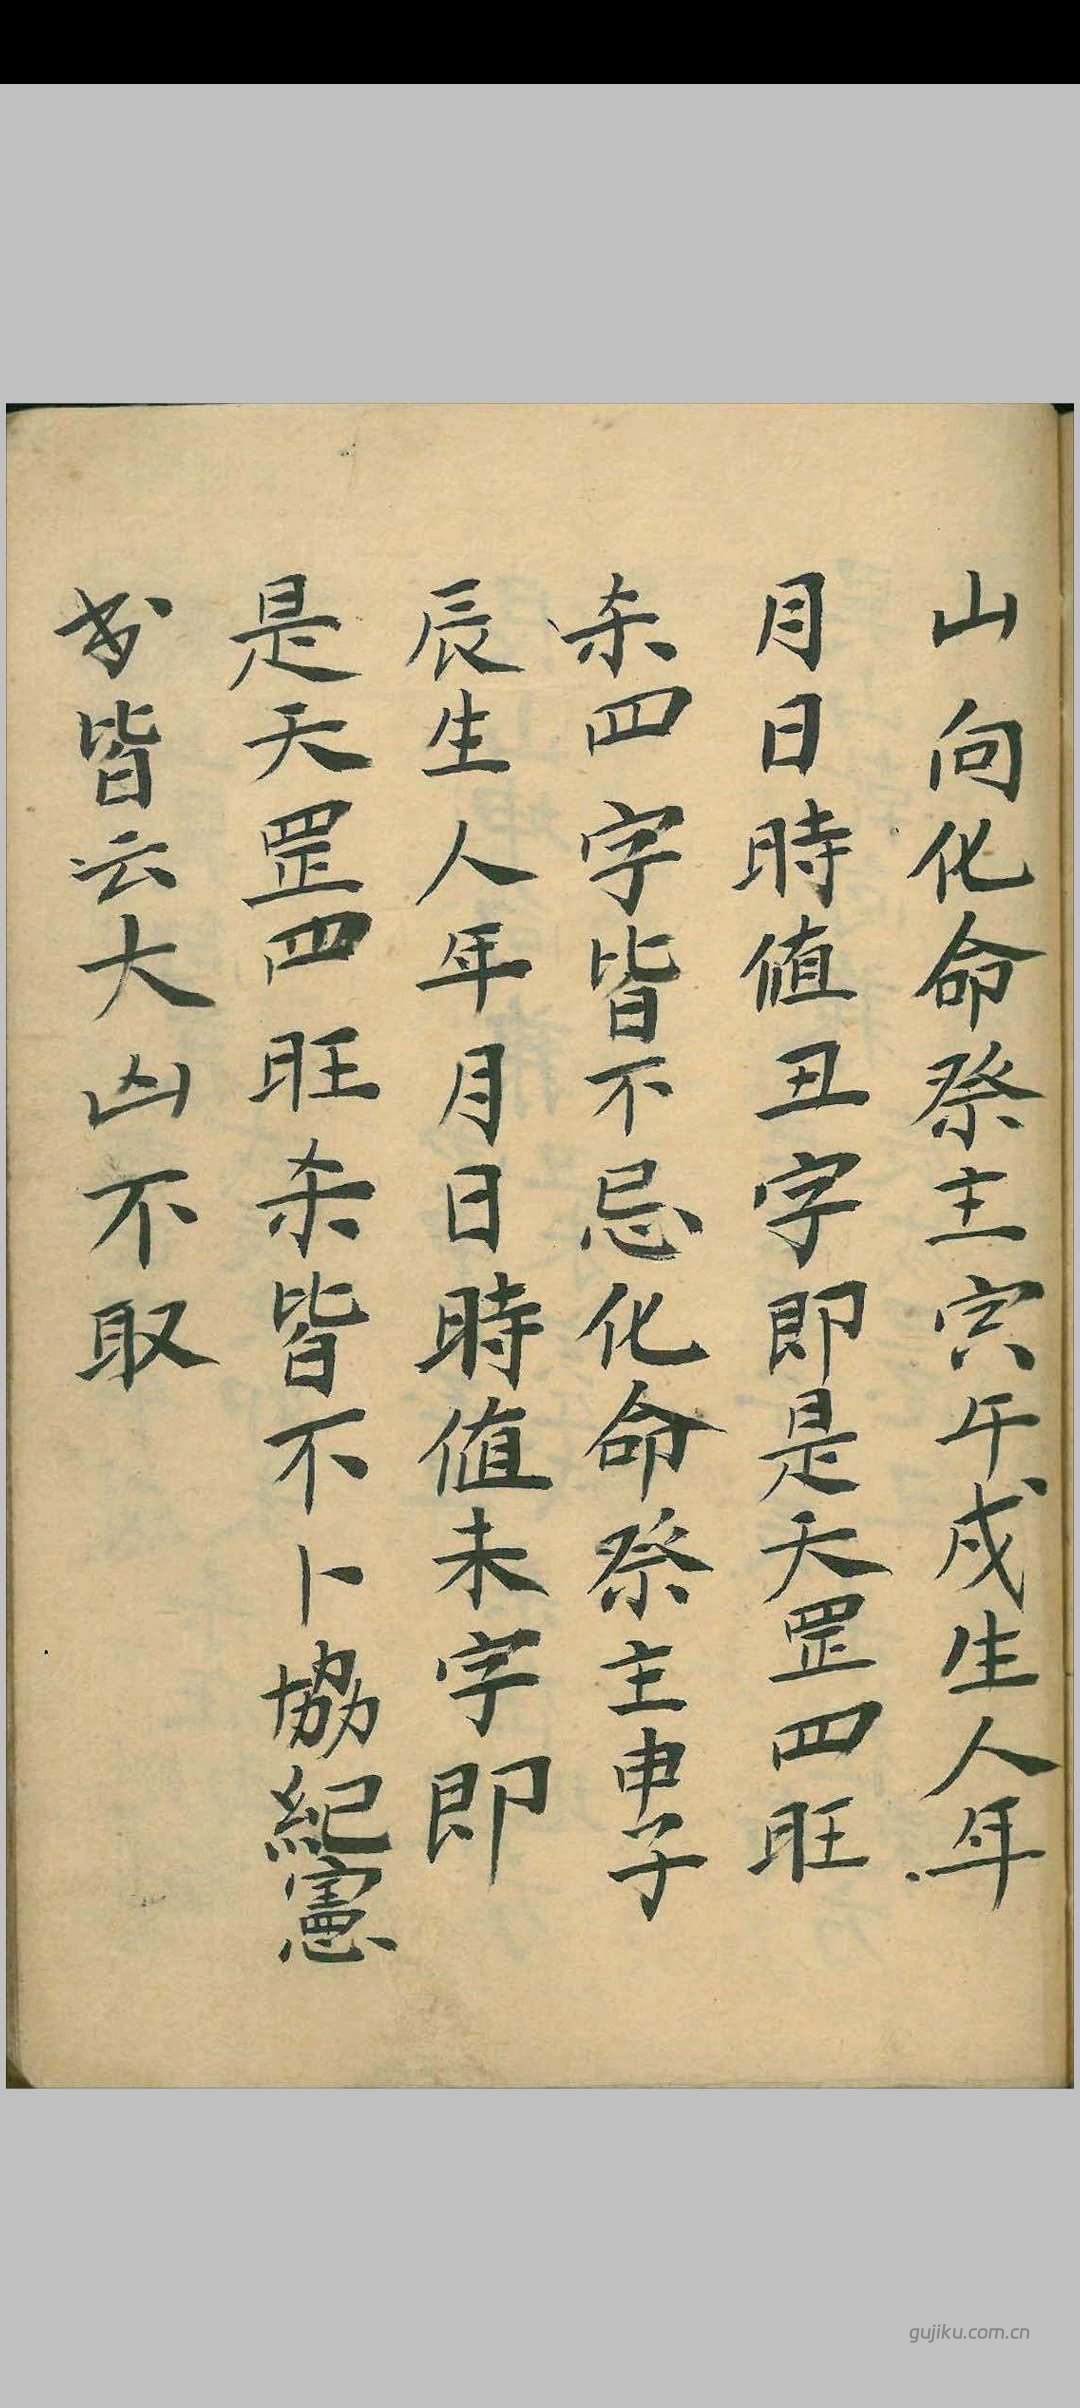 山向化命祭主寅午戌生人年
月日時值丑字即是天罡四旺
杀四字皆不忌化命祭主申子
辰生人年月日時值未字即
是天罡四旺杀皆不卜協紀憲
书皆云大凶不取
gujiku.com.cn